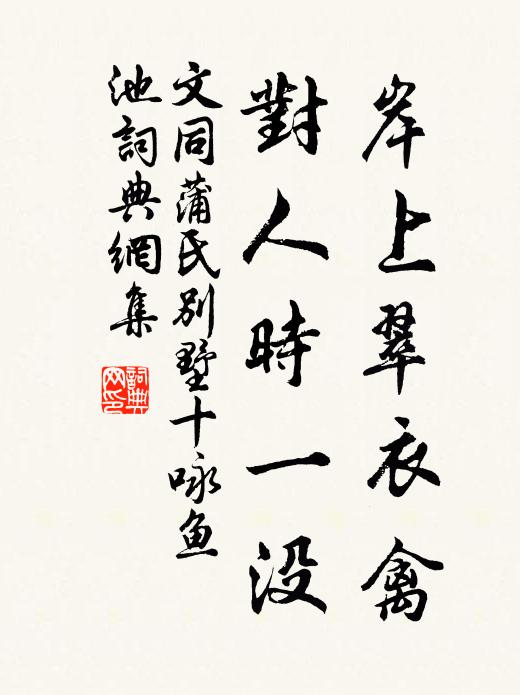 岸上翠衣禽
對人時一沒
文同蒲氏別墅十咏魚
池詞典網集
詞典
网印